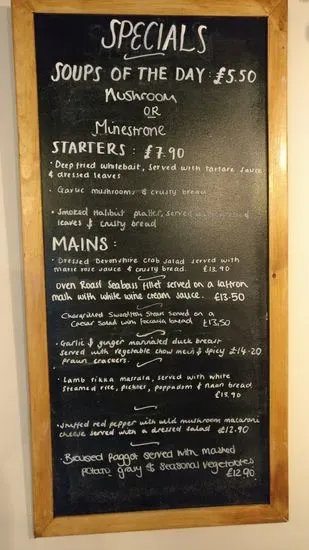 SPECIALS
SOUPS OF THE DAY: £5.50
Mushroom
OR
Minestrone
STARTERS: £7.90
• Deep fried whitebait, served with tartare sauce
& dressed leaves
• Garlic mushrooms & crusty bread
• Smoked Halibut platter, served with dressed
leaves & crusty bread
MAINS:
• Dressed Devonshire Crab Salad served with
marie rose sauce & crusty bread. £13.90
Oven Roast Seabass fillet served on a saffron
mash with white wine cream sauce. £13.50
Chargrilled Swordfish Steak served on a
Caesar Salad with foccacia bread £13.50
• Garlic & ginger marinated duck breast
served with vegetable chow mein & spicy £14.20
prawn crackers.
• Lamb tikka massala, served with white
steamed rice, pickles, poppadom & naan bread
£13.90
• Stuffed red pepper with wild mushroom macaroni
cheese served with a dressed salad £12.90
• Braised faggot served with mashed
potato gravy & seasonal vegetables
£12.90